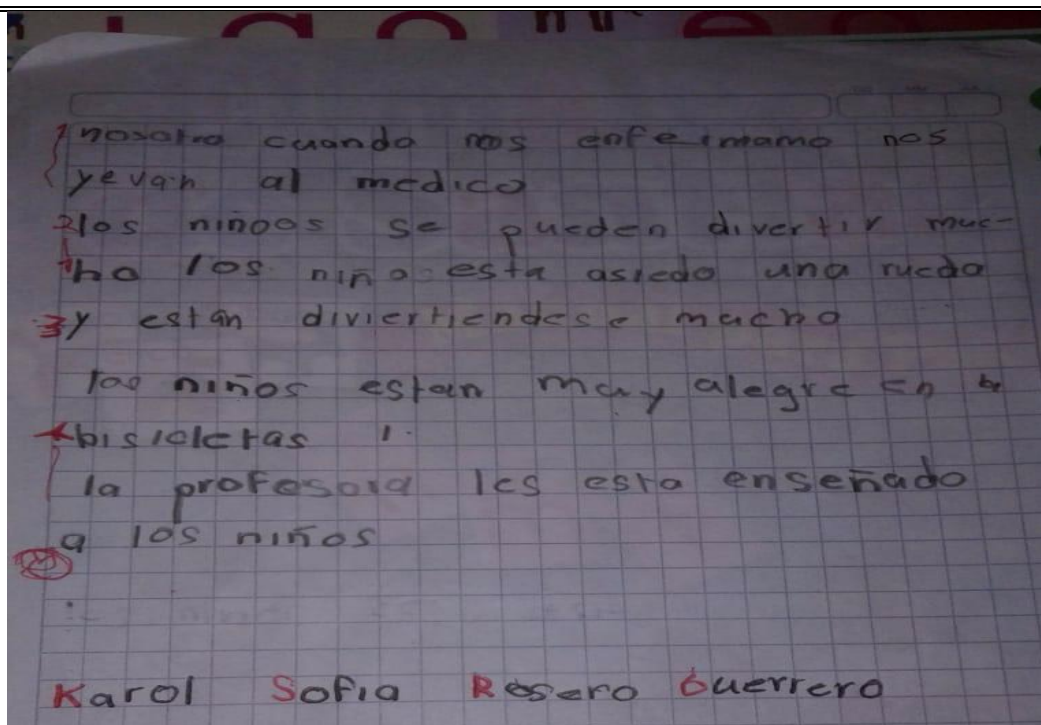 1 nosotro cuando nos enfermamo nos
yevan al medico
2 los niñoos se pueden divertir muc-
ho los niño esta asiedo una rueda
3 y están diviertiendose mucho
los niños estan muy alegre en
bisicletas
la profesora les esta enseñado
a los niños
Karol Sofia Rosero Guerrero